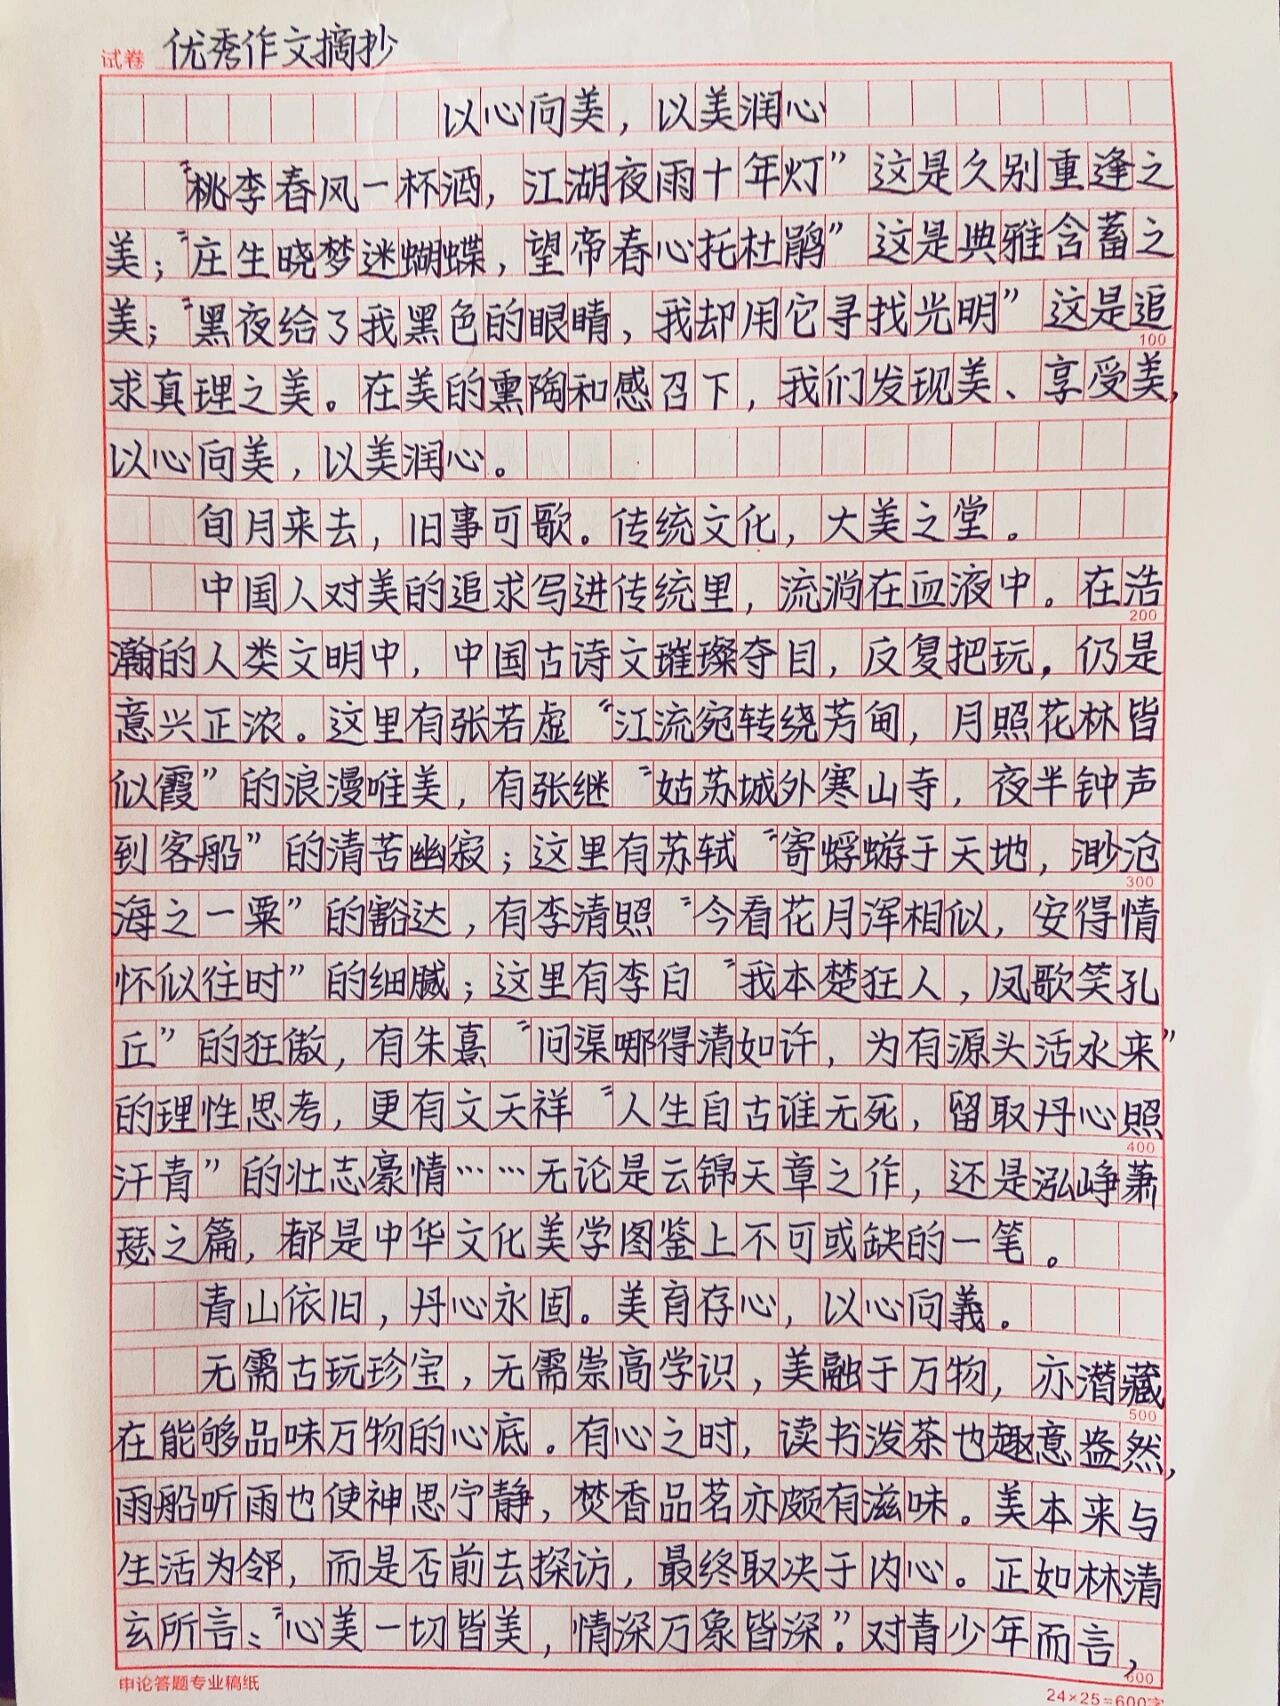 试卷 优秀作文摘抄
以心向美，以美润心
“桃李春风一杯酒，江湖夜雨十年灯”这是久别重逢之
美；“庄生晓梦迷蝴蝶，望帝春心托杜鹃”这是典雅含蓄之
美；“黑夜给了我黑色的眼睛，我却用它寻找光明”这是追
100
求真理之美。在美的熏陶和感召下，我们发现美、享受美，
以心向美，以美润心。
旬月来去，旧事可歌。传统文化，大美之堂。
中国人对美的追求写进传统里，流淌在血液中。在浩
200
瀚的人类文明中，中国古诗文璀璨夺目，反复把玩，仍是
意兴正浓。这里有张若虚“江流宛转绕芳甸，月照花林皆
似霞”的浪漫唯美，有张继“姑苏城外寒山寺，夜半钟声
到客船”的清苦幽寂；这里有苏轼“寄蜉蝣于天地，渺沧
300
海之一粟”的豁达，有李清照“今看花月浑相似，安得情
怀似往时”的细腻；这里有李白“我本楚狂人，凤歌笑孔
丘”的狂傲，有朱熹“问渠哪得清如许，为有源头活水来”
的理性思考，更有文天祥“人生自古谁无死，留取丹心照
400
汗青”的壮志豪情……无论是云锦天章之作，还是泓峥萧
瑟之篇，都是中华文化美学图鉴上不可或缺的一笔。
青山依旧，丹心永固。美育存心，以心向義。
无需古玩珍宝，无需崇高学识，美融于万物，亦潜藏
500
在能够品味万物的心底。有心之时，读书泼茶也趣意盎然，
雨船听雨也使神思宁静，焚香品茗亦颇有滋味。美本来与
生活为邻，而是否前去探访，最终取决于内心。正如林清
玄所言：“心美一切皆美，情深万象皆深”。对青少年而言，
600
申论答题专业稿纸
24×25=600字